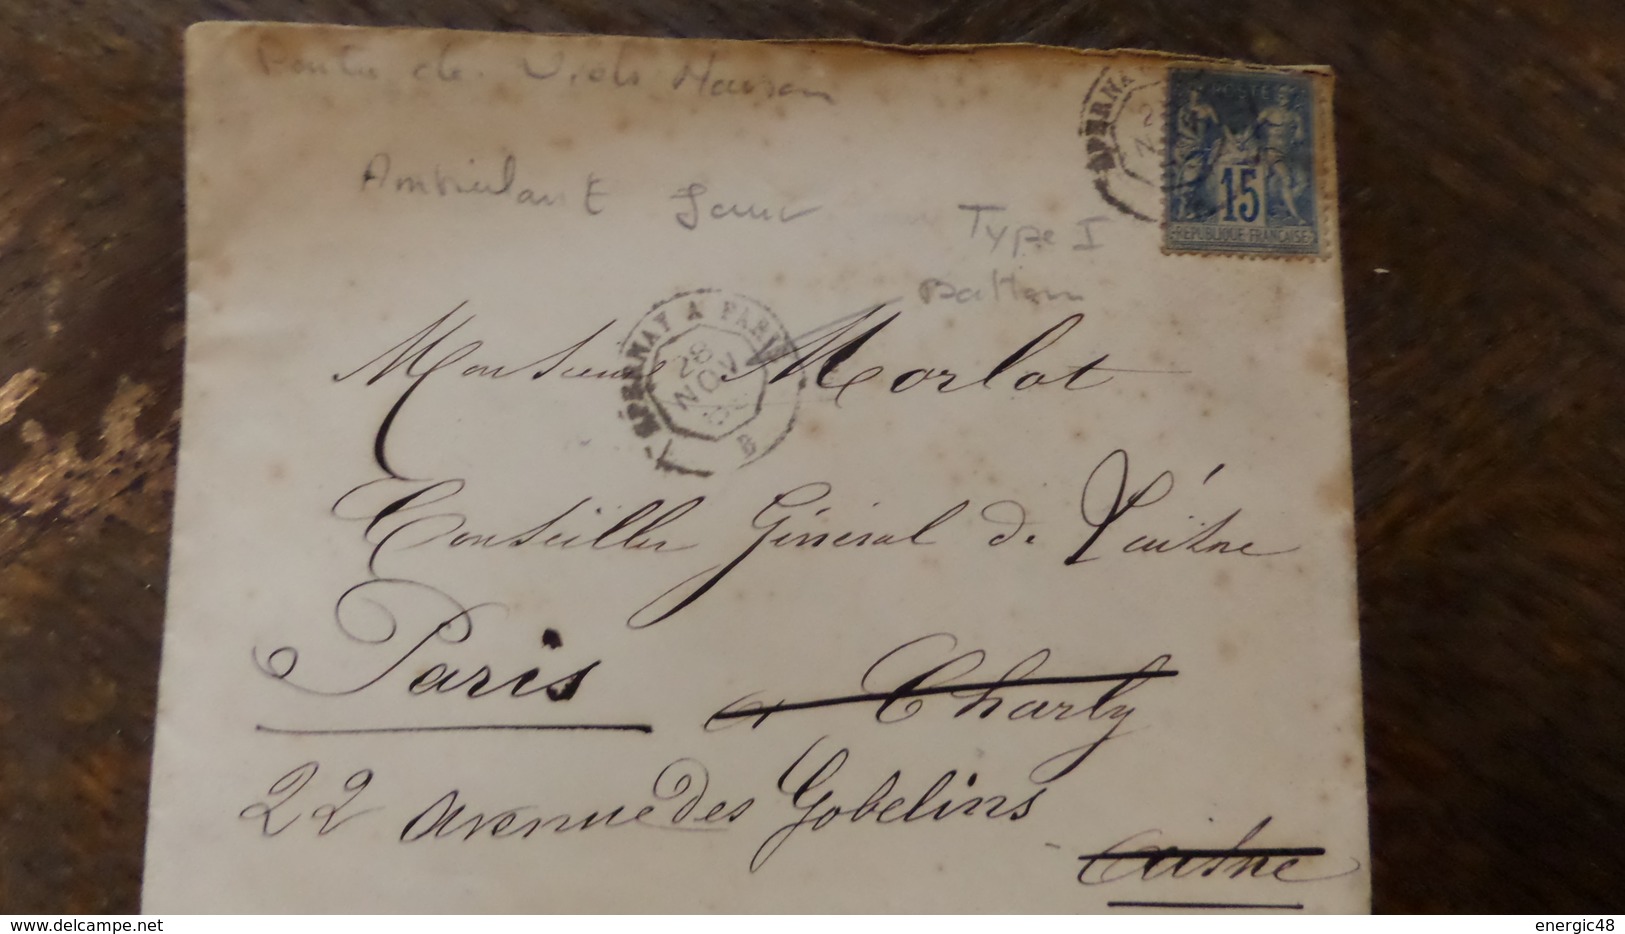 Viels Maison
Ambulant Jour
Type I
EPERNA
2
POSTE
15
REPUBLIQUE FRANÇAISE
EPERNAY A PARIS
28
NOV
B
Monsieur Morlot
Conseiller Général de l'aisne
Paris a Charly
22 avenue des Gobelins
aisne
energic48